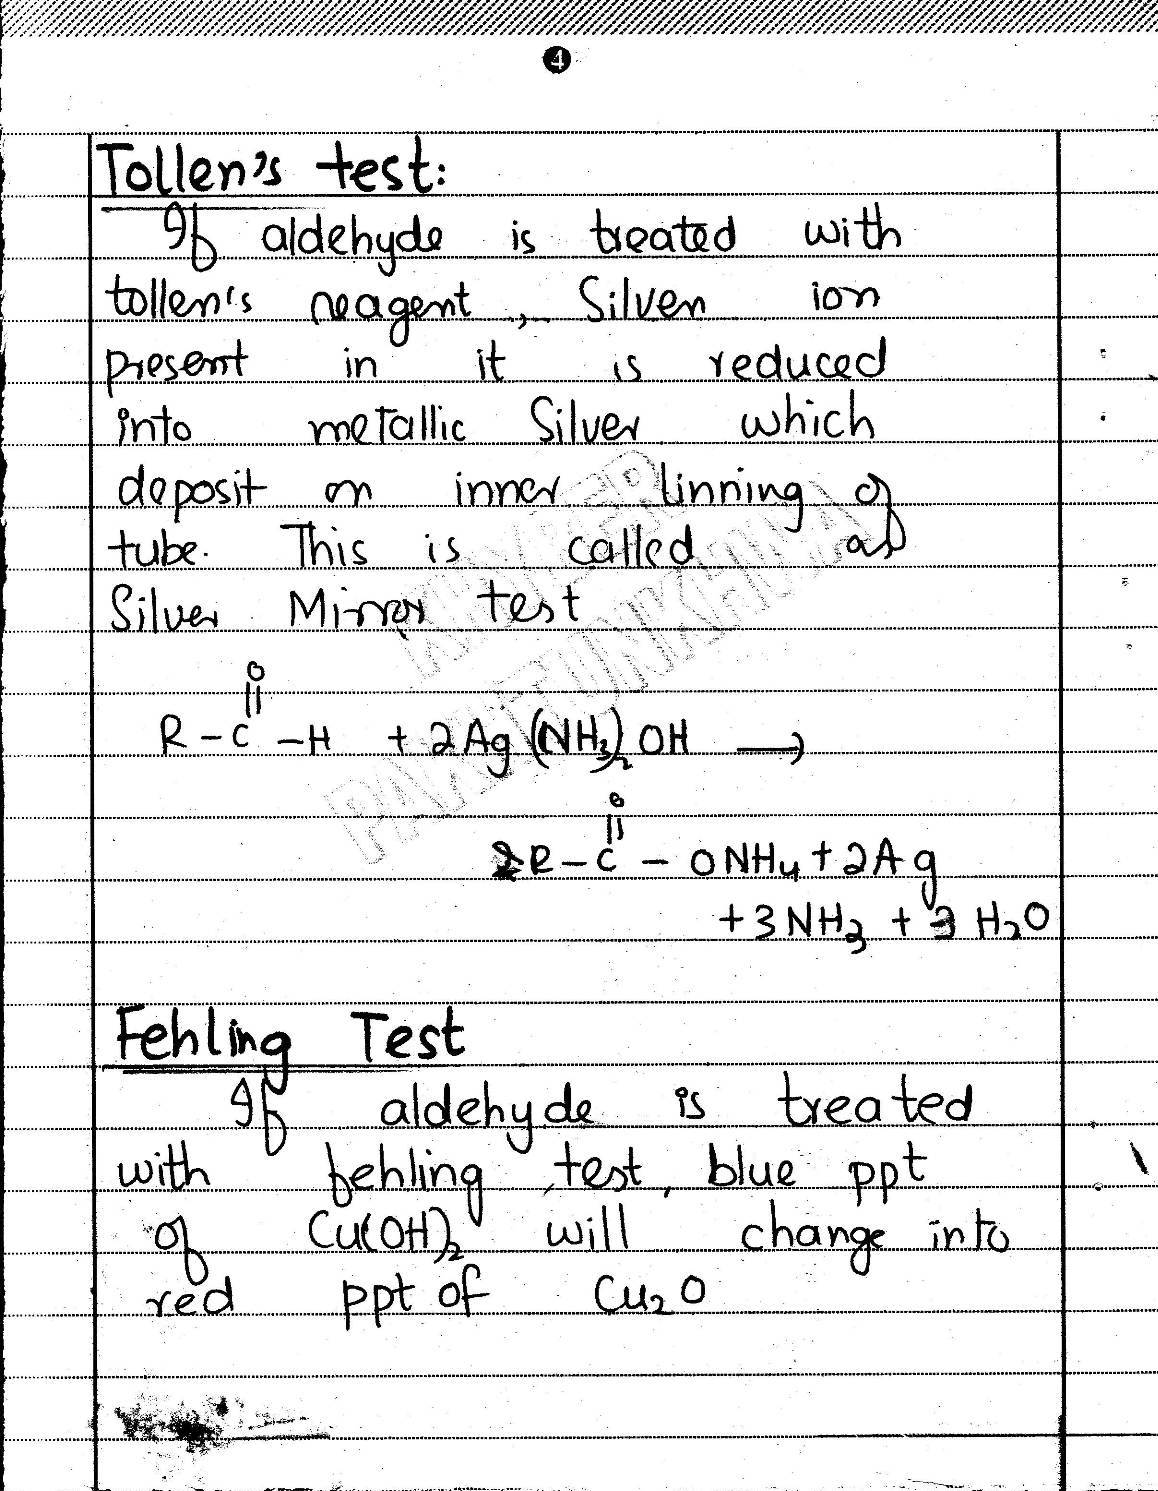 4
Tollen's test:
If aldehyde is treated with
tollen's reagent, Silver ion
present in it is reduced
into metallic Silver which
deposit on inner linning of
tube. This is called as
Silver Mirror test
O
||
R - C - H + 2Ag(NH3)2OH ⟶
O
||
R - C - ONH4 + 2Ag
+ 3NH3 + H2O
Fehling Test
If aldehyde is treated
with fehling test, blue ppt
of Cu(OH)2 will change into
red ppt of Cu2O
KHYBER
PAKHTUNKHWA